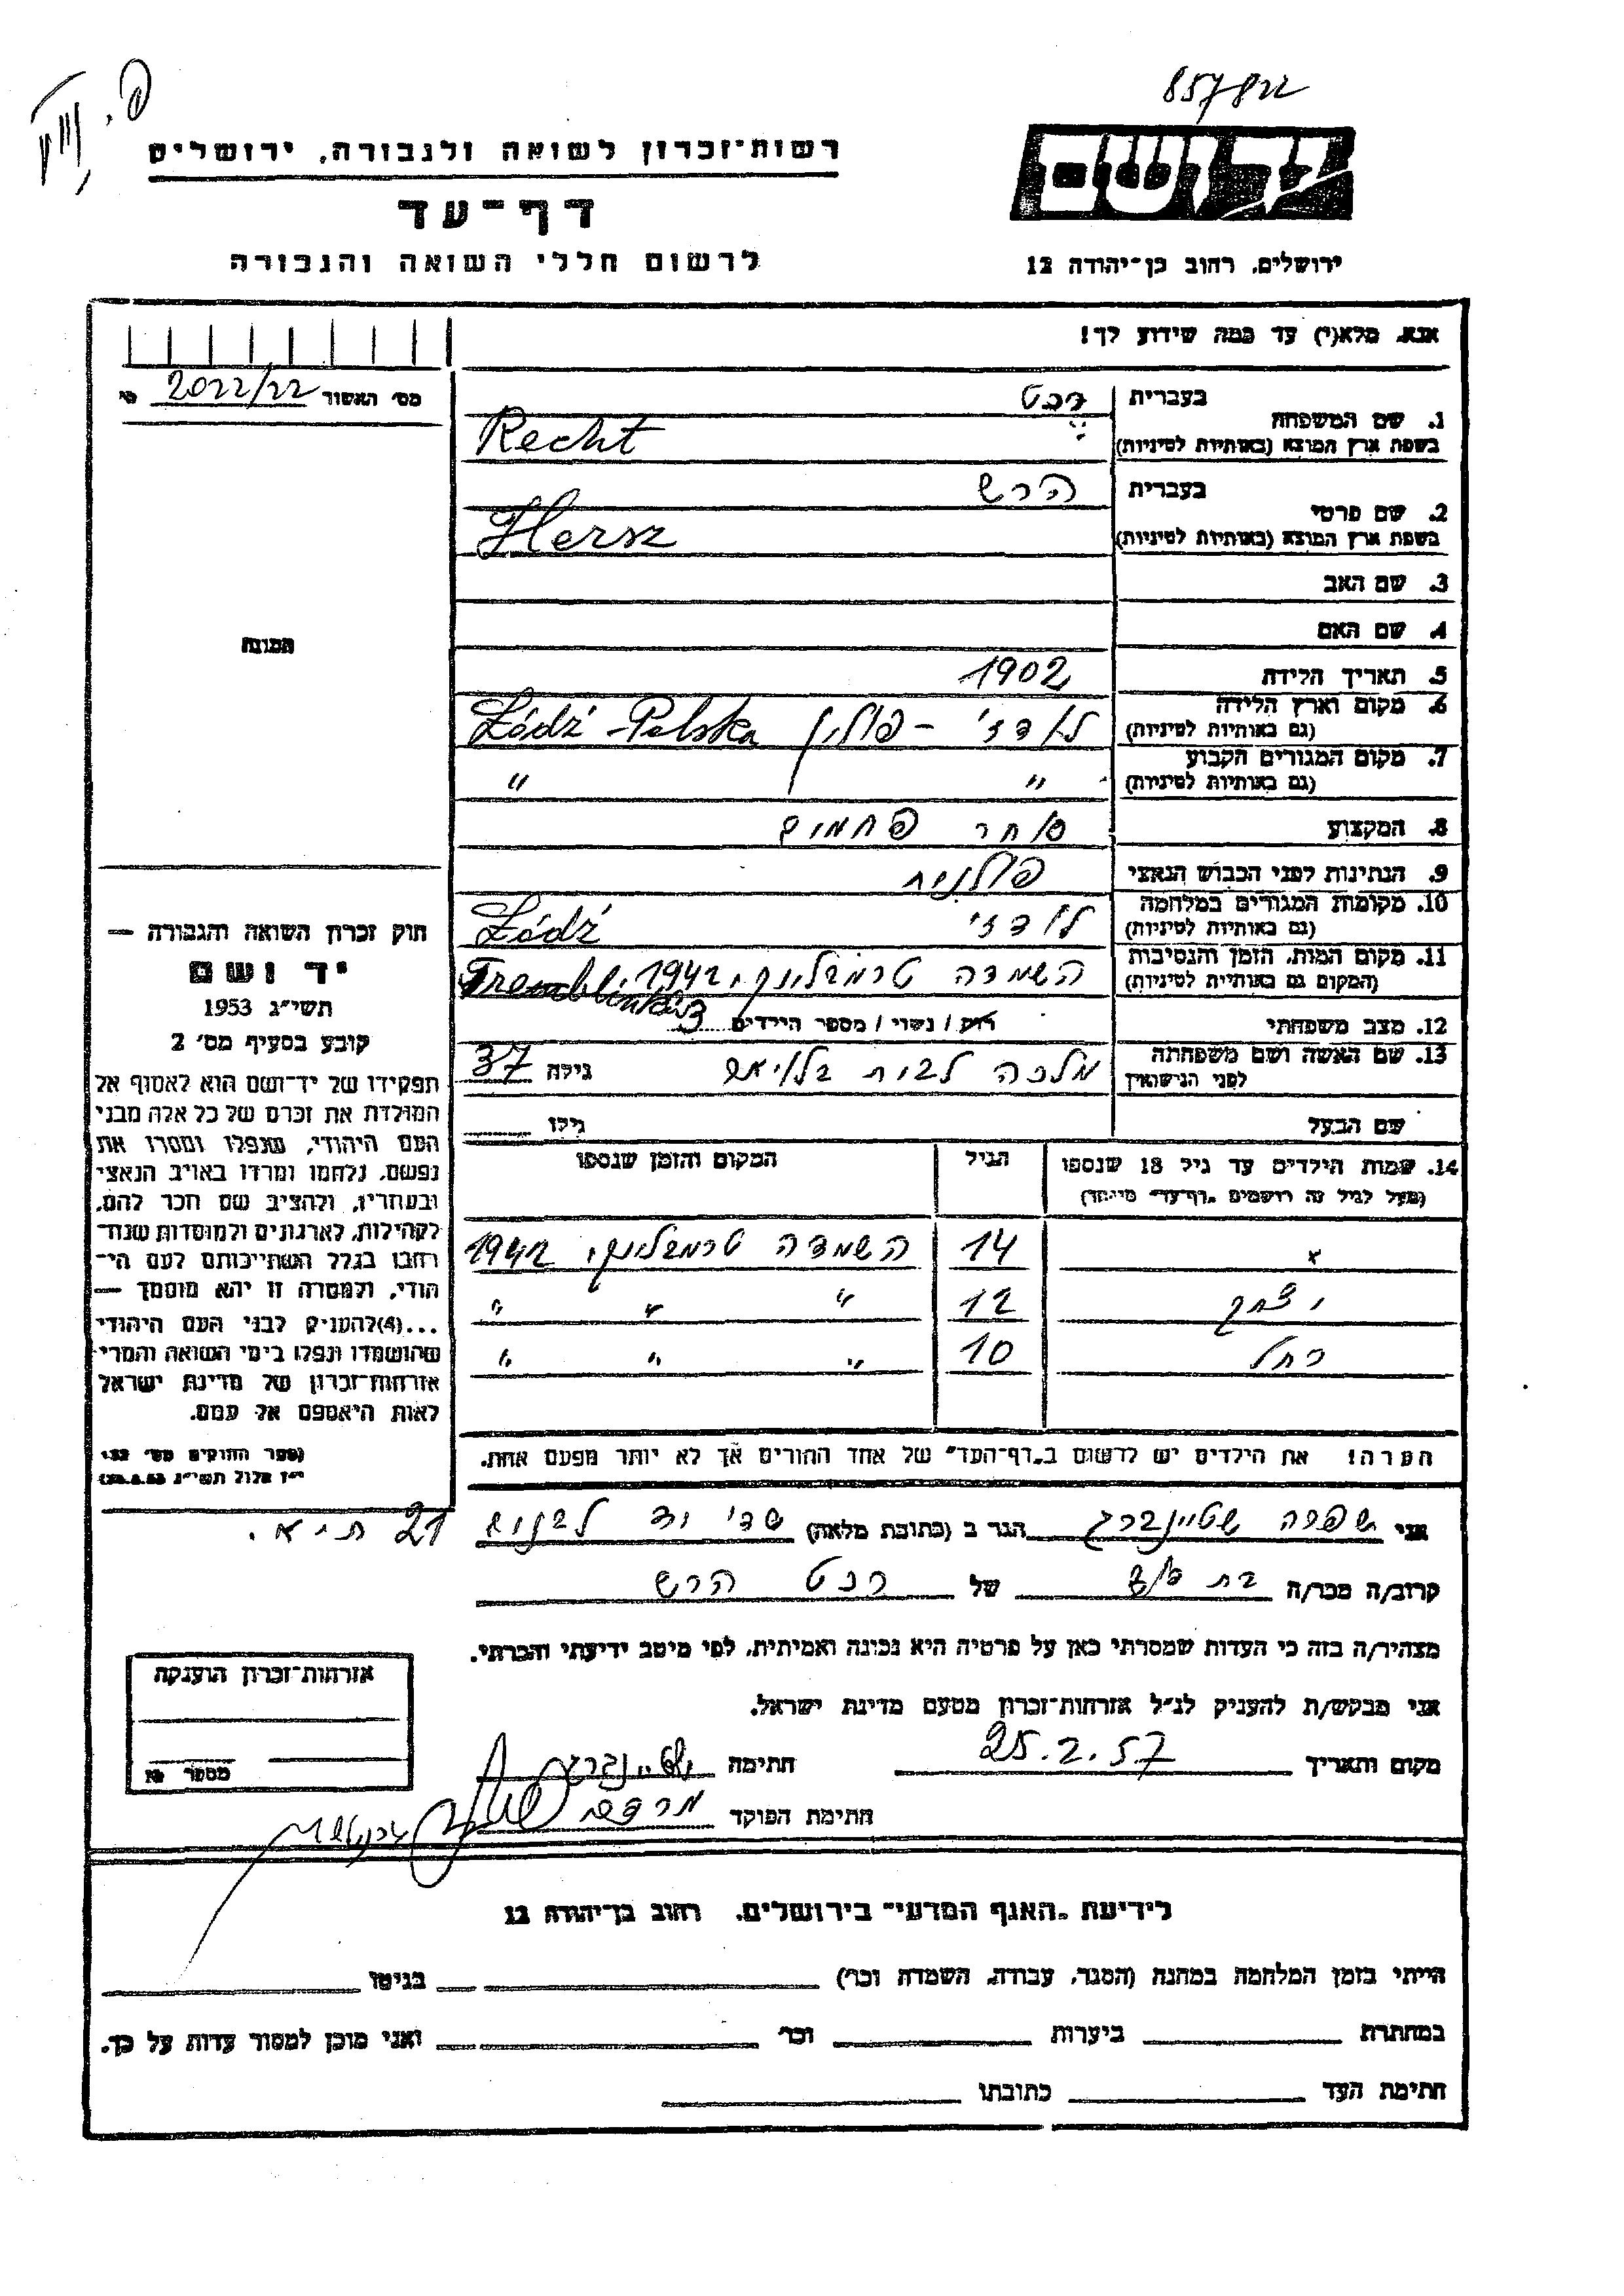 857822
רשות־זכרון לשואה ולגבורה, ירושלים
דף־עד
לרשום חללי השואה והגבורה
ידושם
ירושלים, רחוב בן־יהודה 12
אנא, מלא(י) עד כמה שידוע לך!
מס׳ האשור 2022/22
1. שם המשפחה
בעברית רכט
בשפת ארץ המוצא (באותיות לטיניות) Recht
2. שם פרטי
בעברית הרש
בשפת ארץ המוצא (באותיות לטיניות) Hersz
3. שם האב
4. שם האם
תמונה
5. תאריך הלידה 1902
6. מקום וארץ הלידה לודז׳ - פולין Łódź - Polska
(גם באותיות לטיניות)
7. מקום המגורים הקבוע " "
(גם באותיות לטיניות)
8. המקצוע סוחר פחמים
9. הנתינות לפני הכבוש הנאצי פולנית
10. מקומות המגורים במלחמה לודז׳ Łódź
(גם באותיות לטיניות)
11. מקום המות, הזמן והנסיבות השמדה טרמבלינקי, 1942
(המקום גם באותיות לטיניות)
12. מצב משפחתי רוק / נשוי / מספר הילדים 3
13. שם האשה ושם משפחתה מלכה לבית גילה 37
לפני הנישואין
שם הבעל גילו
14. שמות הילדים עד גיל 18 שנספו הגיל המקום והזמן שנספו
(מעל לגיל זה רושמים „דף־עד״ מיוחד)
x 14 השמדה טרמבלינקי, 1942
יצחק 12 " " "
רחל 10 " " "
הערה! את הילדים יש לרשום ב„דף־העד״ של אחד ההורים אך לא יותר מפעם אחת.
חוק זכרון השואה והגבורה —
יד ושם
תשי״ג 1953
קובע בסעיף מס׳ 2
תפקידו של יד־ושם הוא לאסוף אל
המולדת את זכרם של כל אלה מבני
העם היהודי, שנפלו ומסרו את
נפשם, נלחמו ומרדו באויב הנאצי
ובעוזריו, ולהציב שם וזכר להם,
לקהילות, לארגונים ולמוסדות שנח־
רבו בגלל השתייכותם לעם הי־
הודי, ולמטרה זו יהא מוסמך —
...(4) להעניק לבני העם היהודי
שהושמדו ונפלו בימי השואה והמרי
אזרחות־זכרון של מדינת ישראל
לאות היאספם אל עמם.
(ספר החוקים מס׳ 132
י״ז אלול תשי״ג 28.8.53)
אני שפרה שטיינברג הגר ב (כתובת מלאה) 21 ת״א.
קרוב/ה מכר/ה בת דוד של רכט הרש
מצהיר/ה בזה כי העדות שמסרתי כאן על פרטיה היא נכונה ואמיתית, לפי מיטב ידיעתי והכרתי.
אני מבקש/ת להעניק לנ״ל אזרחות־זכרון מטעם מדינת ישראל.
מקום ותאריך 25.2.57 חתימה שטיינברג
חתימת הפוקד
אזרחות־זכרון הוענקה
מספר
לידיעת „האגף המדעי״ בירושלים, רחוב בן־יהודה 12
הייתי בזמן המלחמה במחנה (הסגר, עבודה, השמדה וכו׳) בגיטו
במחתרת ביערות וכו׳ ואני מוכן למסור עדות על כך.
חתימת העד כתובתו